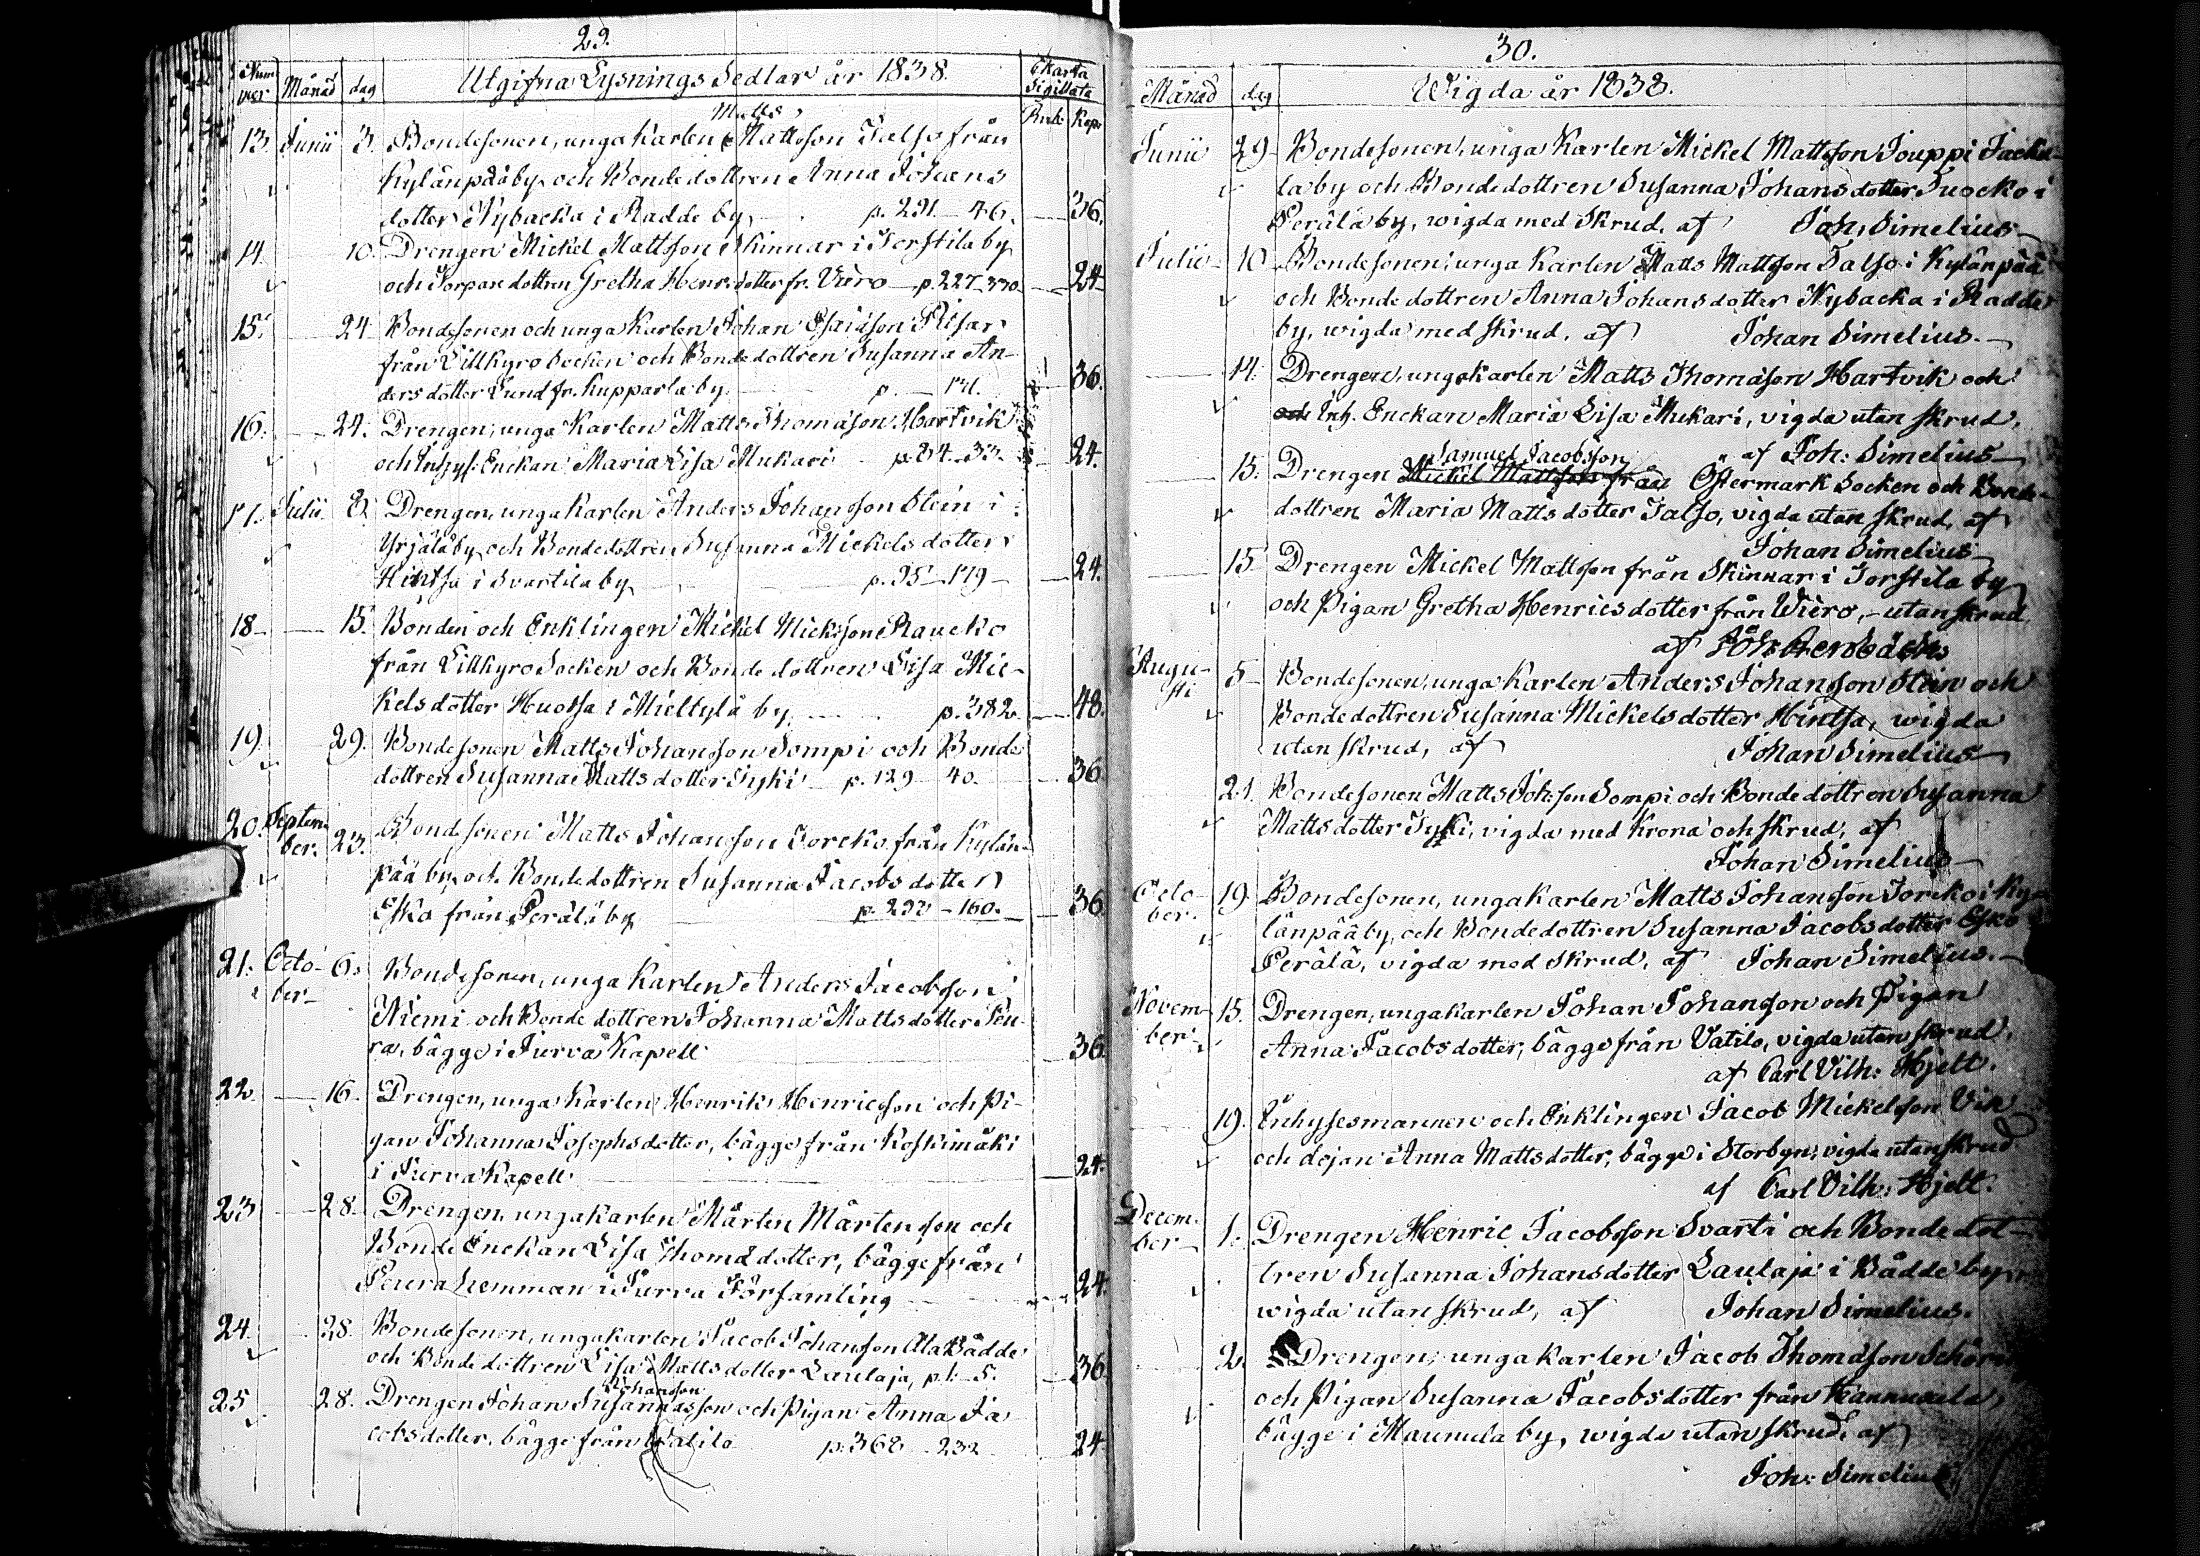 29.
Num mer Månad dag Utgifna Lysnings Sedlar år 1838. Charta Sigillata
Rub. Kop.
Matts
13. Junii 3. Bondesonen, unga Karlen Mattsson Talso från
Kylänpää by och Bondedottren Anna Johans
dotter Nybacka i Radde by p. 291 - 46. 36.
14. 10. Drengen Mickel Mattsson Skinnar i Torstila by
och Torpare dottren Gretha Henr. dotter fr. Wiero p. 227. 330. 24.
15. 24 Bondesonen och unga Karlen Johan Esaiasson Pisar
från Lillkyro Socken och Bondedottren Susanna An-
dersdotter Lund fr. Kupparla by. p. 36.
16. 24. Drengen, unga Karlen Matts Thomasson Hartvik
och Inhys. Enckan Maria Lisa Mukari p. 84. 33. 24.
17. Julii 8. Drengen, unga Karlen Anders Johansson Stein i
Yrjälä by och Bondedottren Susanna Mickelsdotter
Hintsa i Svartila by p. 95 - 179 24.
18 15. Bonden och Enklingen Mickel Micksson Raucko
från Lillkyro Socken och Bondedottren Lisa Mic-
kelsdotter Huossa i Mieltylä by. p. 382. 48.
19. 29. Bondesonen Matts Johansson Sompi och Bonde
dottren Susanna Mattsdotter Tyski p. 129 - 40. 36
20. Septem- ber. 23. Bondesonen Matts Johansson Torcko från Kylän-
pää by, och Bondedottren Susanna Jacobsdotter
Esko från Perälä by p. 292 - 160. 36
21. Octo- ber 6. Bondesonen, unga Karlen Anders Jacobsson
Niemi och Bondedottren Johanna Mattsdotter Peu-
ra, bägge i Jurva Kapell 36.
22. 16. Drengen, unga Karlen Henrik Henricsson och Pi-
gan Johanna Josephsdotter, bägge från Koskimäki
i Jurva Kapell 24.
23 28. Drengen, unga karlen Mårten Mårtensson och
Bonde Enckan Lisa Thomædotter, bägge från
Peura hemman i Jurva Församling 24.
24. 28. Bondesonen, unga karlen Jacob Johansson Ala Bådde
och Bondedottren Lisa Mattsdotter Laulaja, p. 1. - 5. 36
Johansson
25 28. Drengen Johan och Pigan Anna Ja
cobsdotter, bägge från Vatilo p. 368 - 232 24
30.
Månad dag Wigda år 1838.
Junii 29 Bondesonen, unga Karlen Mickel Mattsson Jouppi Jacku-
la by och Bondedottren Susanna Johansdotter Tuocko i
Perälä by, wigda med Skrud, af Joh. Simelius
Julii 10 Bondesonen, unga Karlen Matts Mattsson Talso i Kylänpää
och Bondedottren Anna Johansdotter Nybacka i Radde
by, wigda med skrud, af Johan Simelius.
14. Drengen, unga karlen Matts Thomasson Hartvik och
och Inh. Enckan Maria Lisa Mukari, vigda utan skrud,
af Joh: Simelius
Samuel Jacobsson
15. Drengen Mickel Mattsson från Östermark Socken och Bonde-
dottren Maria Mattsdotter Talso, vigda utan skrud, af
Johan Simelius
15 Drengen Mickel Mattsson från Skinnar i Torstila by
och Pigan Gretha Henricsdotter från Wiero, - utan skrud
af Joh.
Augu- sti 5 Bondesonen, unga Karlen Anders Johansson Stein och
Bondedottren Susanna Mickelsdotter Hintsa, wigda
utan skrud, af Johan Simelius
21. Bondesonen Matts Johsson Sompi och Bondedottren Susanna
Mattsdotter Tyski, vigda med Krona och skrud, af
Johan Simelius
Octo- ber. 19 Bondesonen, unga karlen Matts Johansson Torcko i Ky-
länpää by, och Bondedottren Susanna Jacobsdotter Esko
Perälä, vigda med skrud, af Johan Simelius.
Novem- ber 15. Drengen, unga karlen Johan Johansson och Pigan
Anna Jacobsdotter, bägge från Vatilo, vigda utan skrud,
af Carl Vilh: Hjelt.
19. Inhysesmannen och Enklingen Jacob Mickelsson Vik
och dejan Anna Mattsdotter, bägge i Storbyn, vigda utan skrud
af Carl Vilh: Hjelt.
Decem- ber 1. Drengen Henric Jacobsson Svarti och Bondedot-
tren Susanna Johansdotter Laulaja i Bådde by
wigda utan skrud, af Johan Simelius.
2 Drengen, unga karlen Jacob Thomasson
och Pigan Susanna Jacobsdotter från
bägge i Maunula by, wigda utan skrud, af
Joh: Simelius